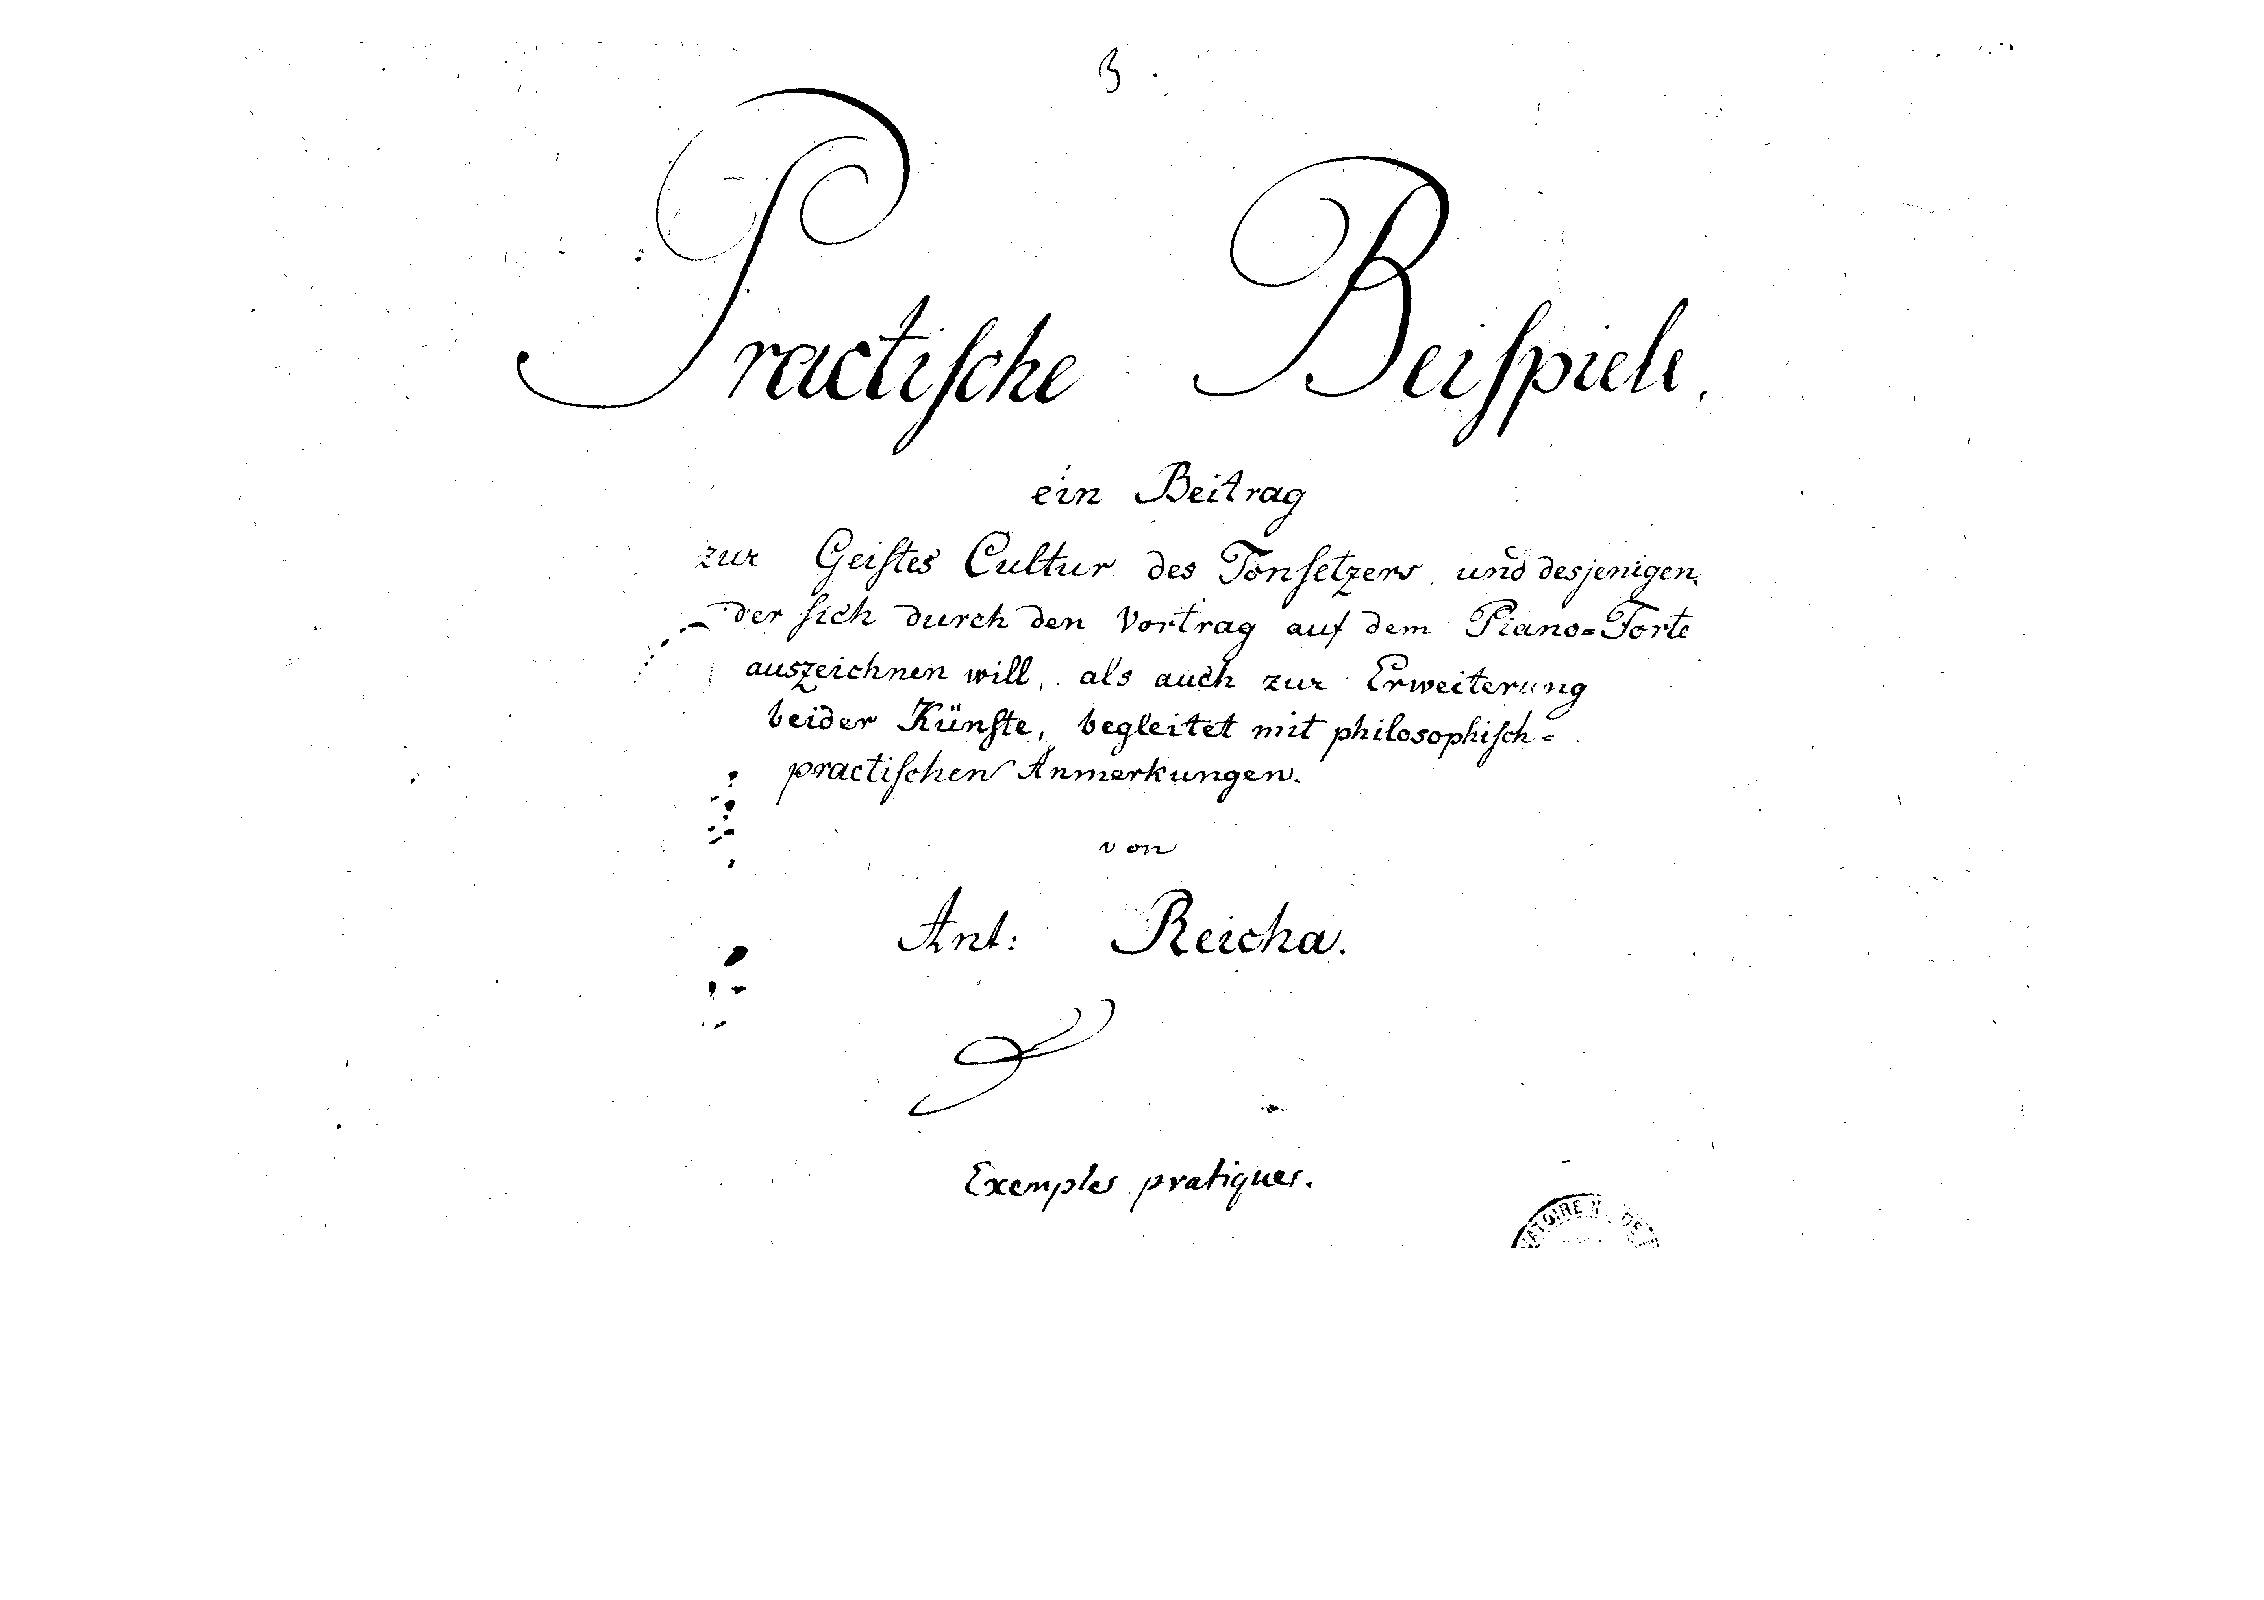 3.
Practiſche Beiſpiele.
ein Beitrag
zur Geiſtes Cultur des Tonſetzers und desjenigen
der ſich durch den Vortrag auf dem Piano=Forte
auszeichnen will, als auch zur Erweiterung
beider Künſte, begleitet mit philosophiſch=
practiſchen Anmerkungen.
von
Ant: Reicha.
Exemples pratiques.
ATOIRE N. DE